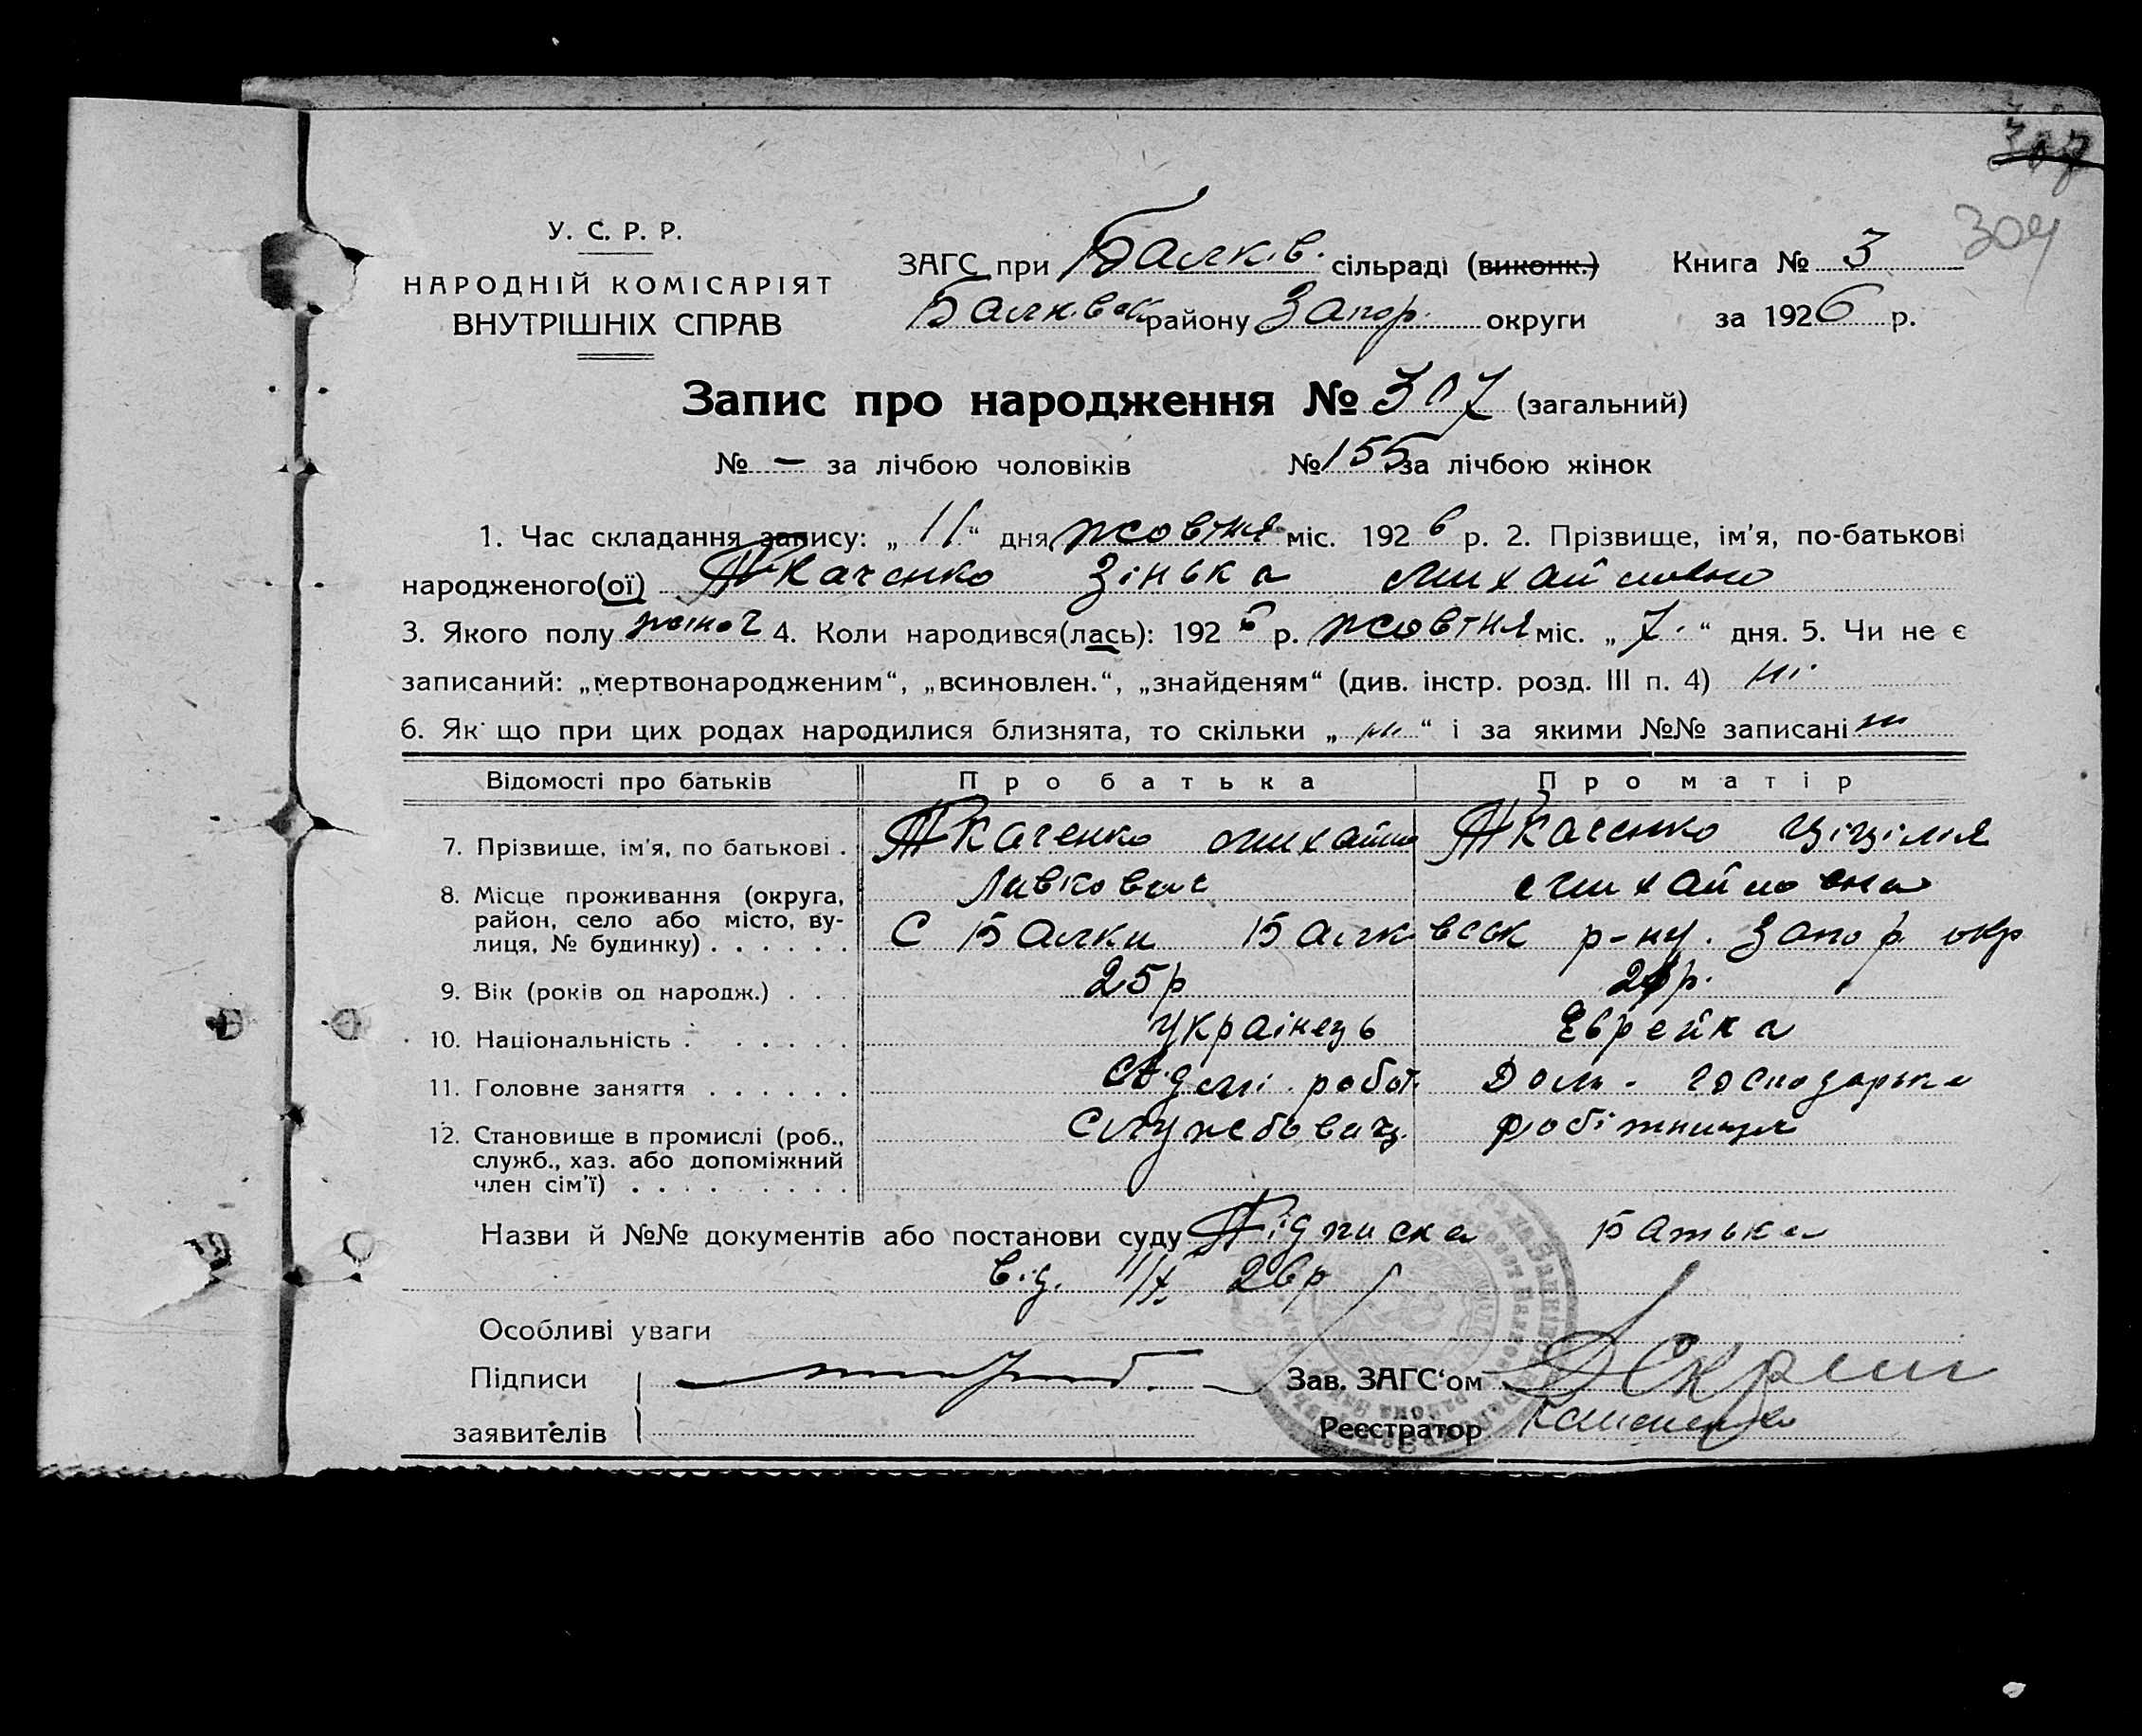 307
304
У. С. Р. Р.
НАРОДНІЙ КОМІСАРІЯТ
ВНУТРІШНІХ СПРАВ
ЗАГС при Балк.в. сільраді (виконк.)
Балк.вськ району Запор. округи
Книга № 3
за 1926 р.
Запис про народження № 307 (загальний)
№ — за лічбою чоловіків № 155 за лічбою жінок
1. Час складання запису: „ 11 “ дня жовтня міс. 1926 р. 2. Прізвище, ім'я, по-батькові
народженого(ої) Ткаченко Зінька Михайловно
3. Якого полу жіноч 4. Коли народився(лась): 1926 р. жовтня міс. „ 7. “ дня. 5. Чи не є
записаний: „мертвонародженим“, „всиновлен.“, „знайденям“ (див. інстр. розд. III п. 4) ні
6. Як що при цих родах народилися близнята, то скільки „ ні “ і за якими №№ записані ні
Відомості про батьків Про батька Про матір
7. Прізвище, ім'я, по батькові . Ткаченко Михайло Ткаченко Ціцілія
Лавкович Михайловна
8. Місце проживання (округа,
район, село або місто, ву-
лиця, № будинку) . . . . . . С Балки Балк вськ р-ну. Запор окр
9. Вік (років од народж.) . . . 25р
10. Національність . . . . . . Українець Еврейка
11. Головне заняття . . . . . . робот. Дом. господарка
12. Становище в промислі (роб.,
служб., хаз. або допоміжний
член сім'ї) . . . . . . . . . Службовец. робітниця
Назви й №№ документів або постанови суду Підписка Батька
від. 11/X 26р
Особливі уваги
Підписи
заявителів
Зав. ЗАГС'ом
Реєстратор